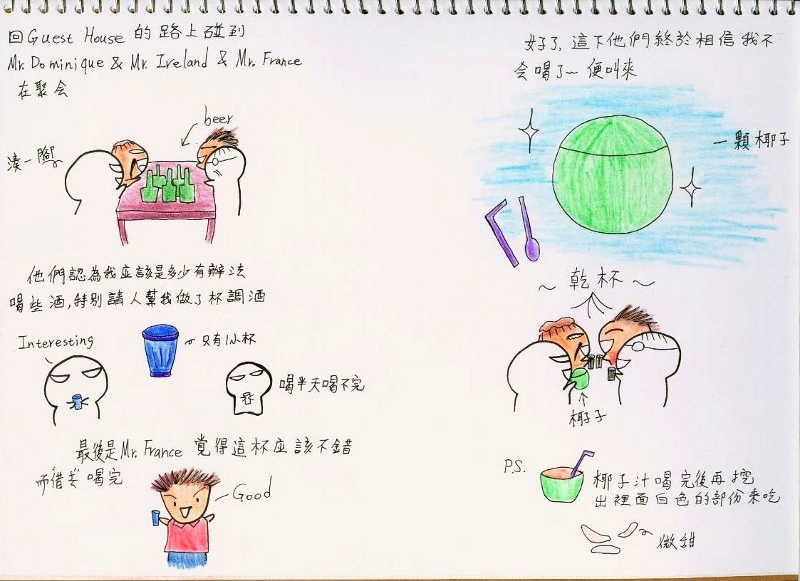 回Guest House 的路上碰到
Mr. Dominique & Mr. Ireland & Mr. France
在聚会
beer
湊一腳
他們認為我应該是多少有辦法
喝些酒,特別請人幫我做了杯調酒
Interesting
只有1小杯
喝半天喝不完
最後是Mr. France 覺得這杯应該不錯
而借去喝完
Good
好了,這下他們終於相信我不
会喝了~ 便叫來
一顆椰子
~ 乾杯 ~
椰子
P.S.
椰子汁喝完後再挖
出裡面白色的部份來吃
微甜